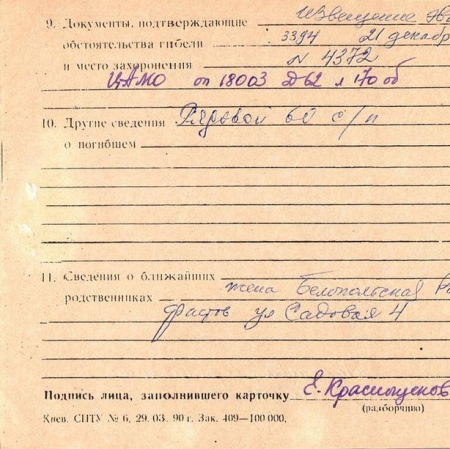 9. Документы, подтверждающие Извещение Эва
обстоятельства гибели 3394 21 декабр
и место захоронения N 4372
ЦАМО оп 18003 Д 62 л 170 об
10. Другие сведения Рядовой 60 с/п
о погибшем
11. Сведения о ближайших
родственниках жена Белопольская
ул Садовая 4
Подпись лица, заполнившего карточку Е. Краснощеков
(разборчиво)
Киев. СНТУ № 6, 29. 03. 90 г. Зак. 409—100 000,